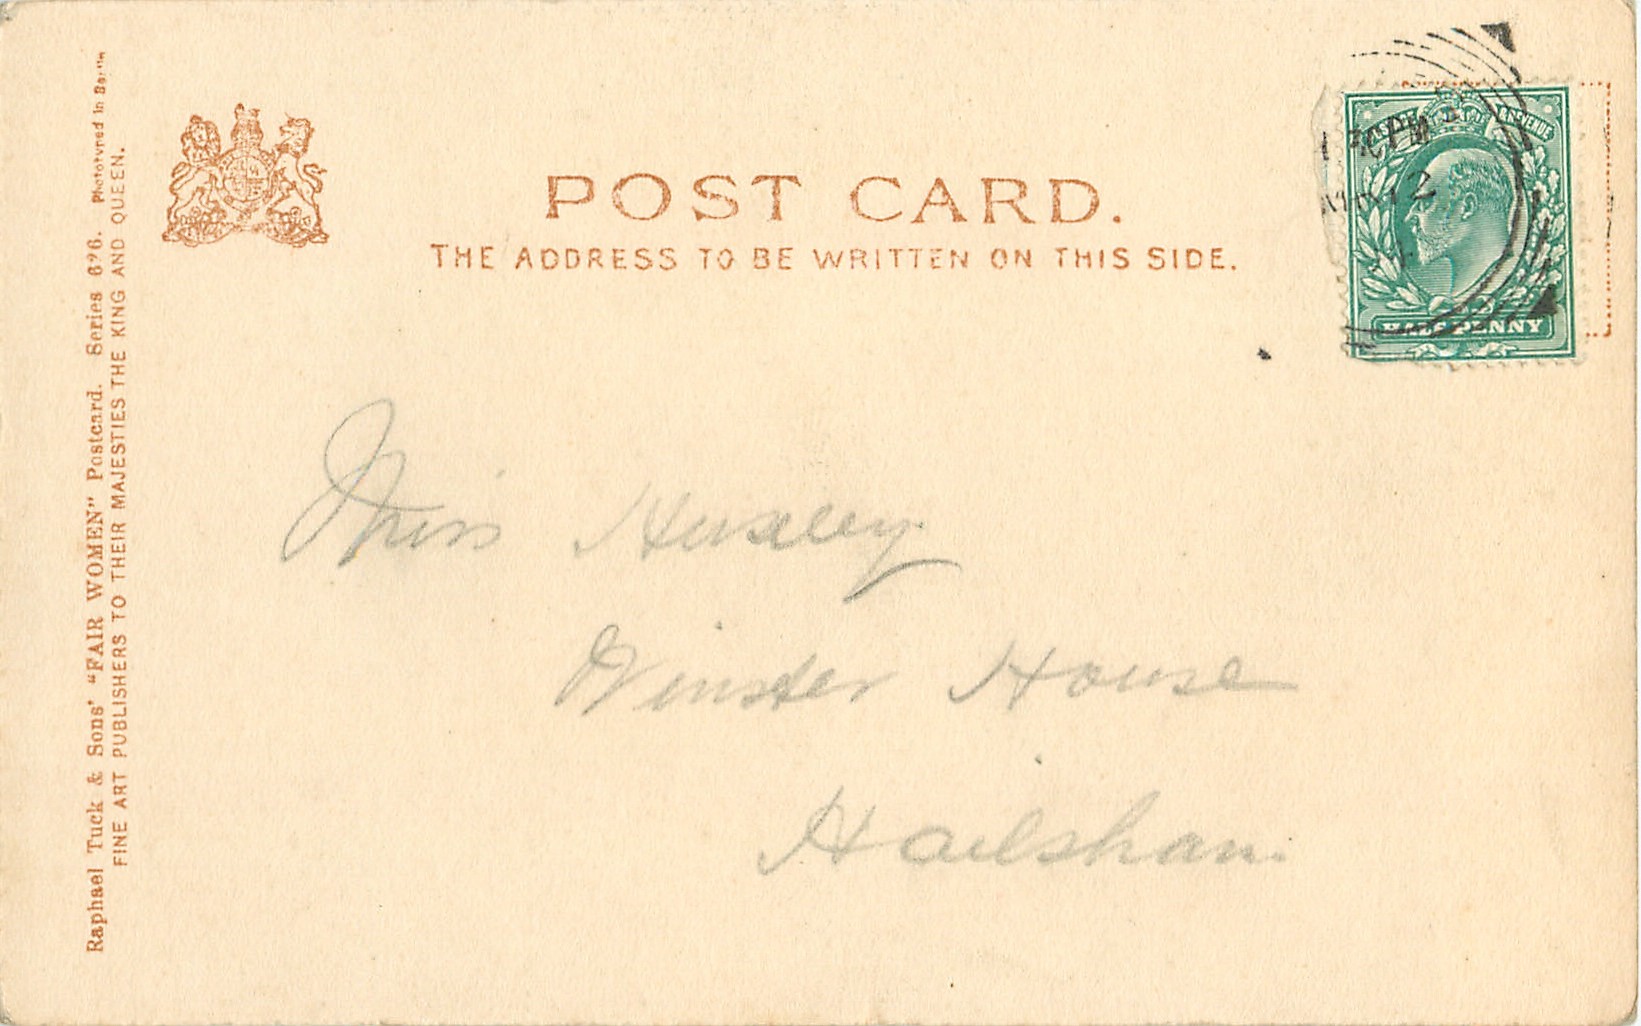 Raphael Tuck & Sons' "FAIR WOMEN" Postcard. Series 696. Phototyped in Berlin
FINE ART PUBLISHERS TO THEIR MAJESTIES THE KING AND QUEEN.
POST CARD.
THE ADDRESS TO BE WRITTEN ON THIS SIDE.
POSTAGE REVENUE
HALF PENNY
PM
Miss
Winster House
Hailsham.